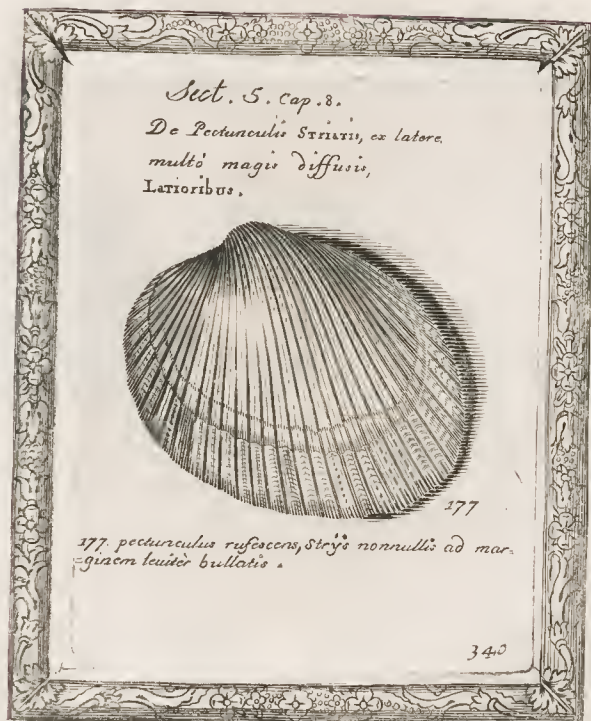 Sect. 5. Cap. 8.
De Pectunculis Striatis, ex latere
multò magis diffusis,
Latioribus.
177
177. pectunculus rufescens, Strÿs nonnullis ad mar=
=ginem leuitèr bullatis.
340